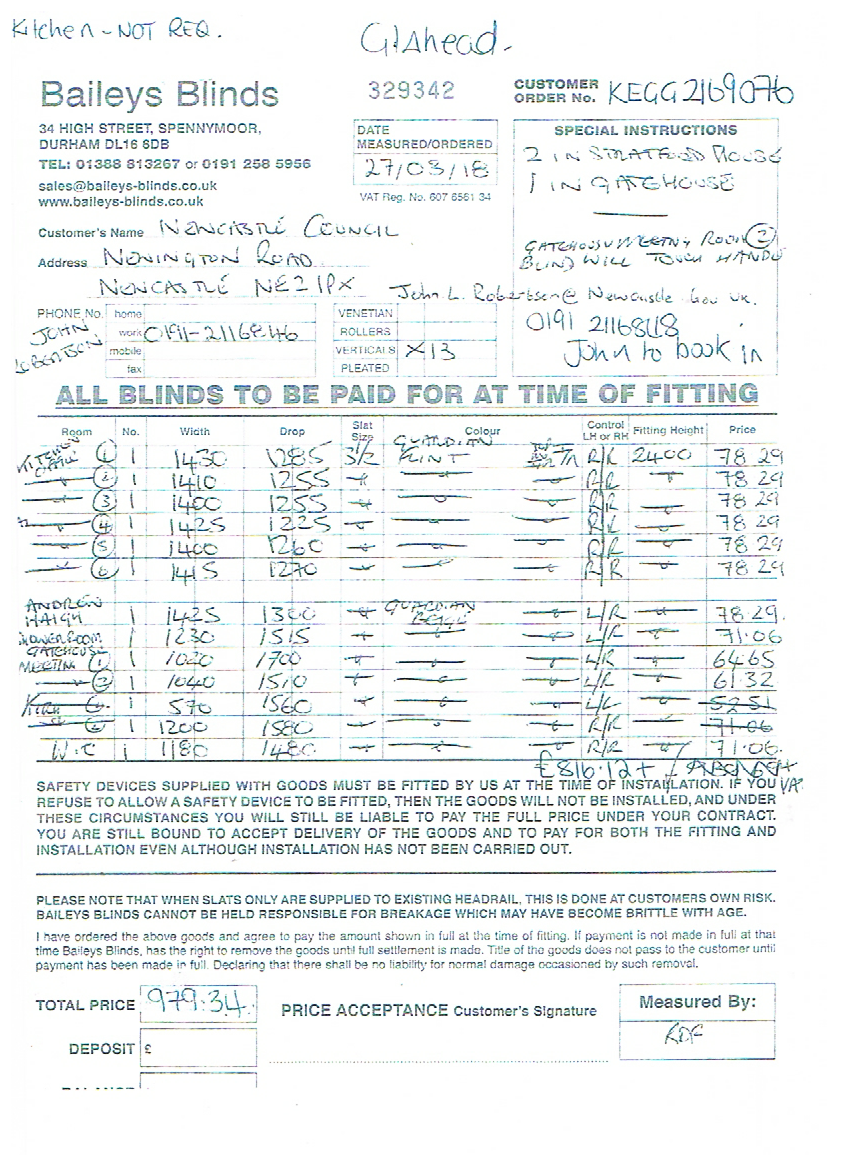 Kitchen - NOT REQ.
G/Ahead.
Baileys Blinds
34 HIGH STREET, SPENNYMOOR,
DURHAM DL16 6DB
TEL: 01388 813267 or 0191 258 5956
sales@baileys-blinds.co.uk
www.baileys-blinds.co.uk
329342
DATE
MEASURED/ORDERED
27/03/18
VAT Reg. No. 607 6561 34
CUSTOMER
ORDER No. KEGG2169076
SPECIAL INSTRUCTIONS
2 IN STRATFORD HOUSE
1 IN GATEHOUSE
GATEHOUSE MEETING ROOM 2
BLIND WILL TOUCH HANDLE
Customer's Name NEWCASTLE COUNCIL
Address NEWINGTON ROAD
NEWCASTLE NE2 1PX
John L. Robertson@ Newcastle.Gov.uk.
0191 2116848
John to book in
PHONE No.
JOHN
ROBERTSON
home
work 0191-2116846
mobile
fax
VENETIAN
ROLLERS
VERTICALS X13
PLEATED
ALL BLINDS TO BE PAID FOR AT TIME OF FITTING
Room No. Width Drop Slat Size Colour Control LH or RH Fitting Height Price
KITCHEN 1 1 1430 1285 3½ GUARDIAN FLINT R/R 2400 78 29
2 1 1410 1255 R/R 78 29
3 1 1400 1255 R/R 78 29
4 1 1425 1225 R/R 78 29
5 1 1400 1260 R/R 78 29
6 1 1415 1270 R/R 78 29
ANDREW HAIGH 1 1425 1300 GUARDIAN BEIGE L/R 78 29.
ROOM 1 1230 1515 L/R 71.06
GATEHOUSE MEETING 1 1 1020 1700 L/R 64 65
2 1 1040 1510 L/R 61.32
1 570 1560 L/L 52 51
1 1200 1580 R/R 71.06
W.C 1 1180 1480 R/R 71.06.
£816.12 + VAT
SAFETY DEVICES SUPPLIED WITH GOODS MUST BE FITTED BY US AT THE TIME OF INSTALLATION. IF YOU
REFUSE TO ALLOW A SAFETY DEVICE TO BE FITTED, THEN THE GOODS WILL NOT BE INSTALLED, AND UNDER
THESE CIRCUMSTANCES YOU WILL STILL BE LIABLE TO PAY THE FULL PRICE UNDER YOUR CONTRACT.
YOU ARE STILL BOUND TO ACCEPT DELIVERY OF THE GOODS AND TO PAY FOR BOTH THE FITTING AND
INSTALLATION EVEN ALTHOUGH INSTALLATION HAS NOT BEEN CARRIED OUT.
PLEASE NOTE THAT WHEN SLATS ONLY ARE SUPPLIED TO EXISTING HEADRAIL, THIS IS DONE AT CUSTOMERS OWN RISK.
BAILEYS BLINDS CANNOT BE HELD RESPONSIBLE FOR BREAKAGE WHICH MAY HAVE BECOME BRITTLE WITH AGE.
I have ordered the above goods and agree to pay the amount shown in full at the time of fitting. If payment is not made in full at that
time Baileys Blinds, has the right to remove the goods until full settlement is made. Title of the goods does not pass to the customer until
payment has been made in full. Declaring that there shall be no liability for normal damage occasioned by such removal.
TOTAL PRICE 979.34
DEPOSIT £
PRICE ACCEPTANCE Customer's Signature
Measured By:
RDF